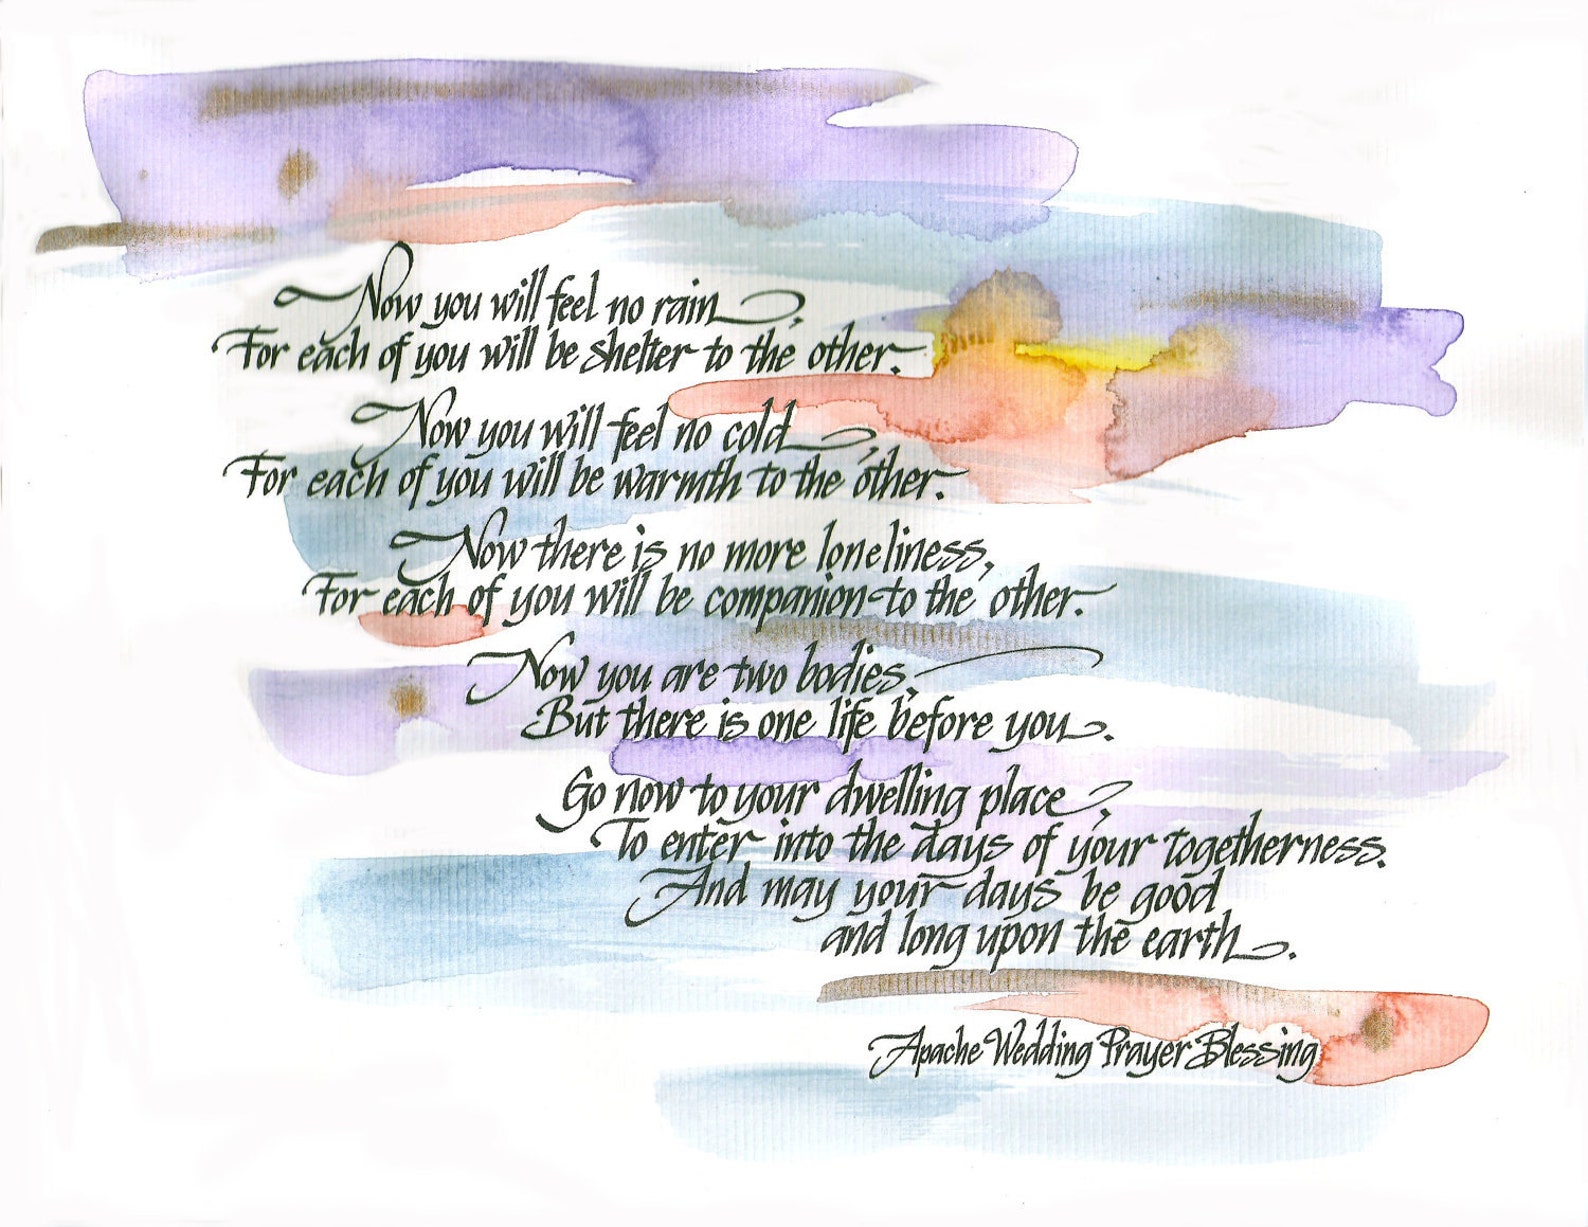 Now you will feel no rain,
For each of you will be shelter to the other.
Now you will feel no cold,
For each of you will be warmth to the other.
Now there is no more loneliness,
For each of you will be companion to the other.
Now you are two bodies,
But there is one life before you.
Go now to your dwelling place,
To enter into the days of your togetherness.
And may your days be good
and long upon the earth.
Apache Wedding Prayer Blessing